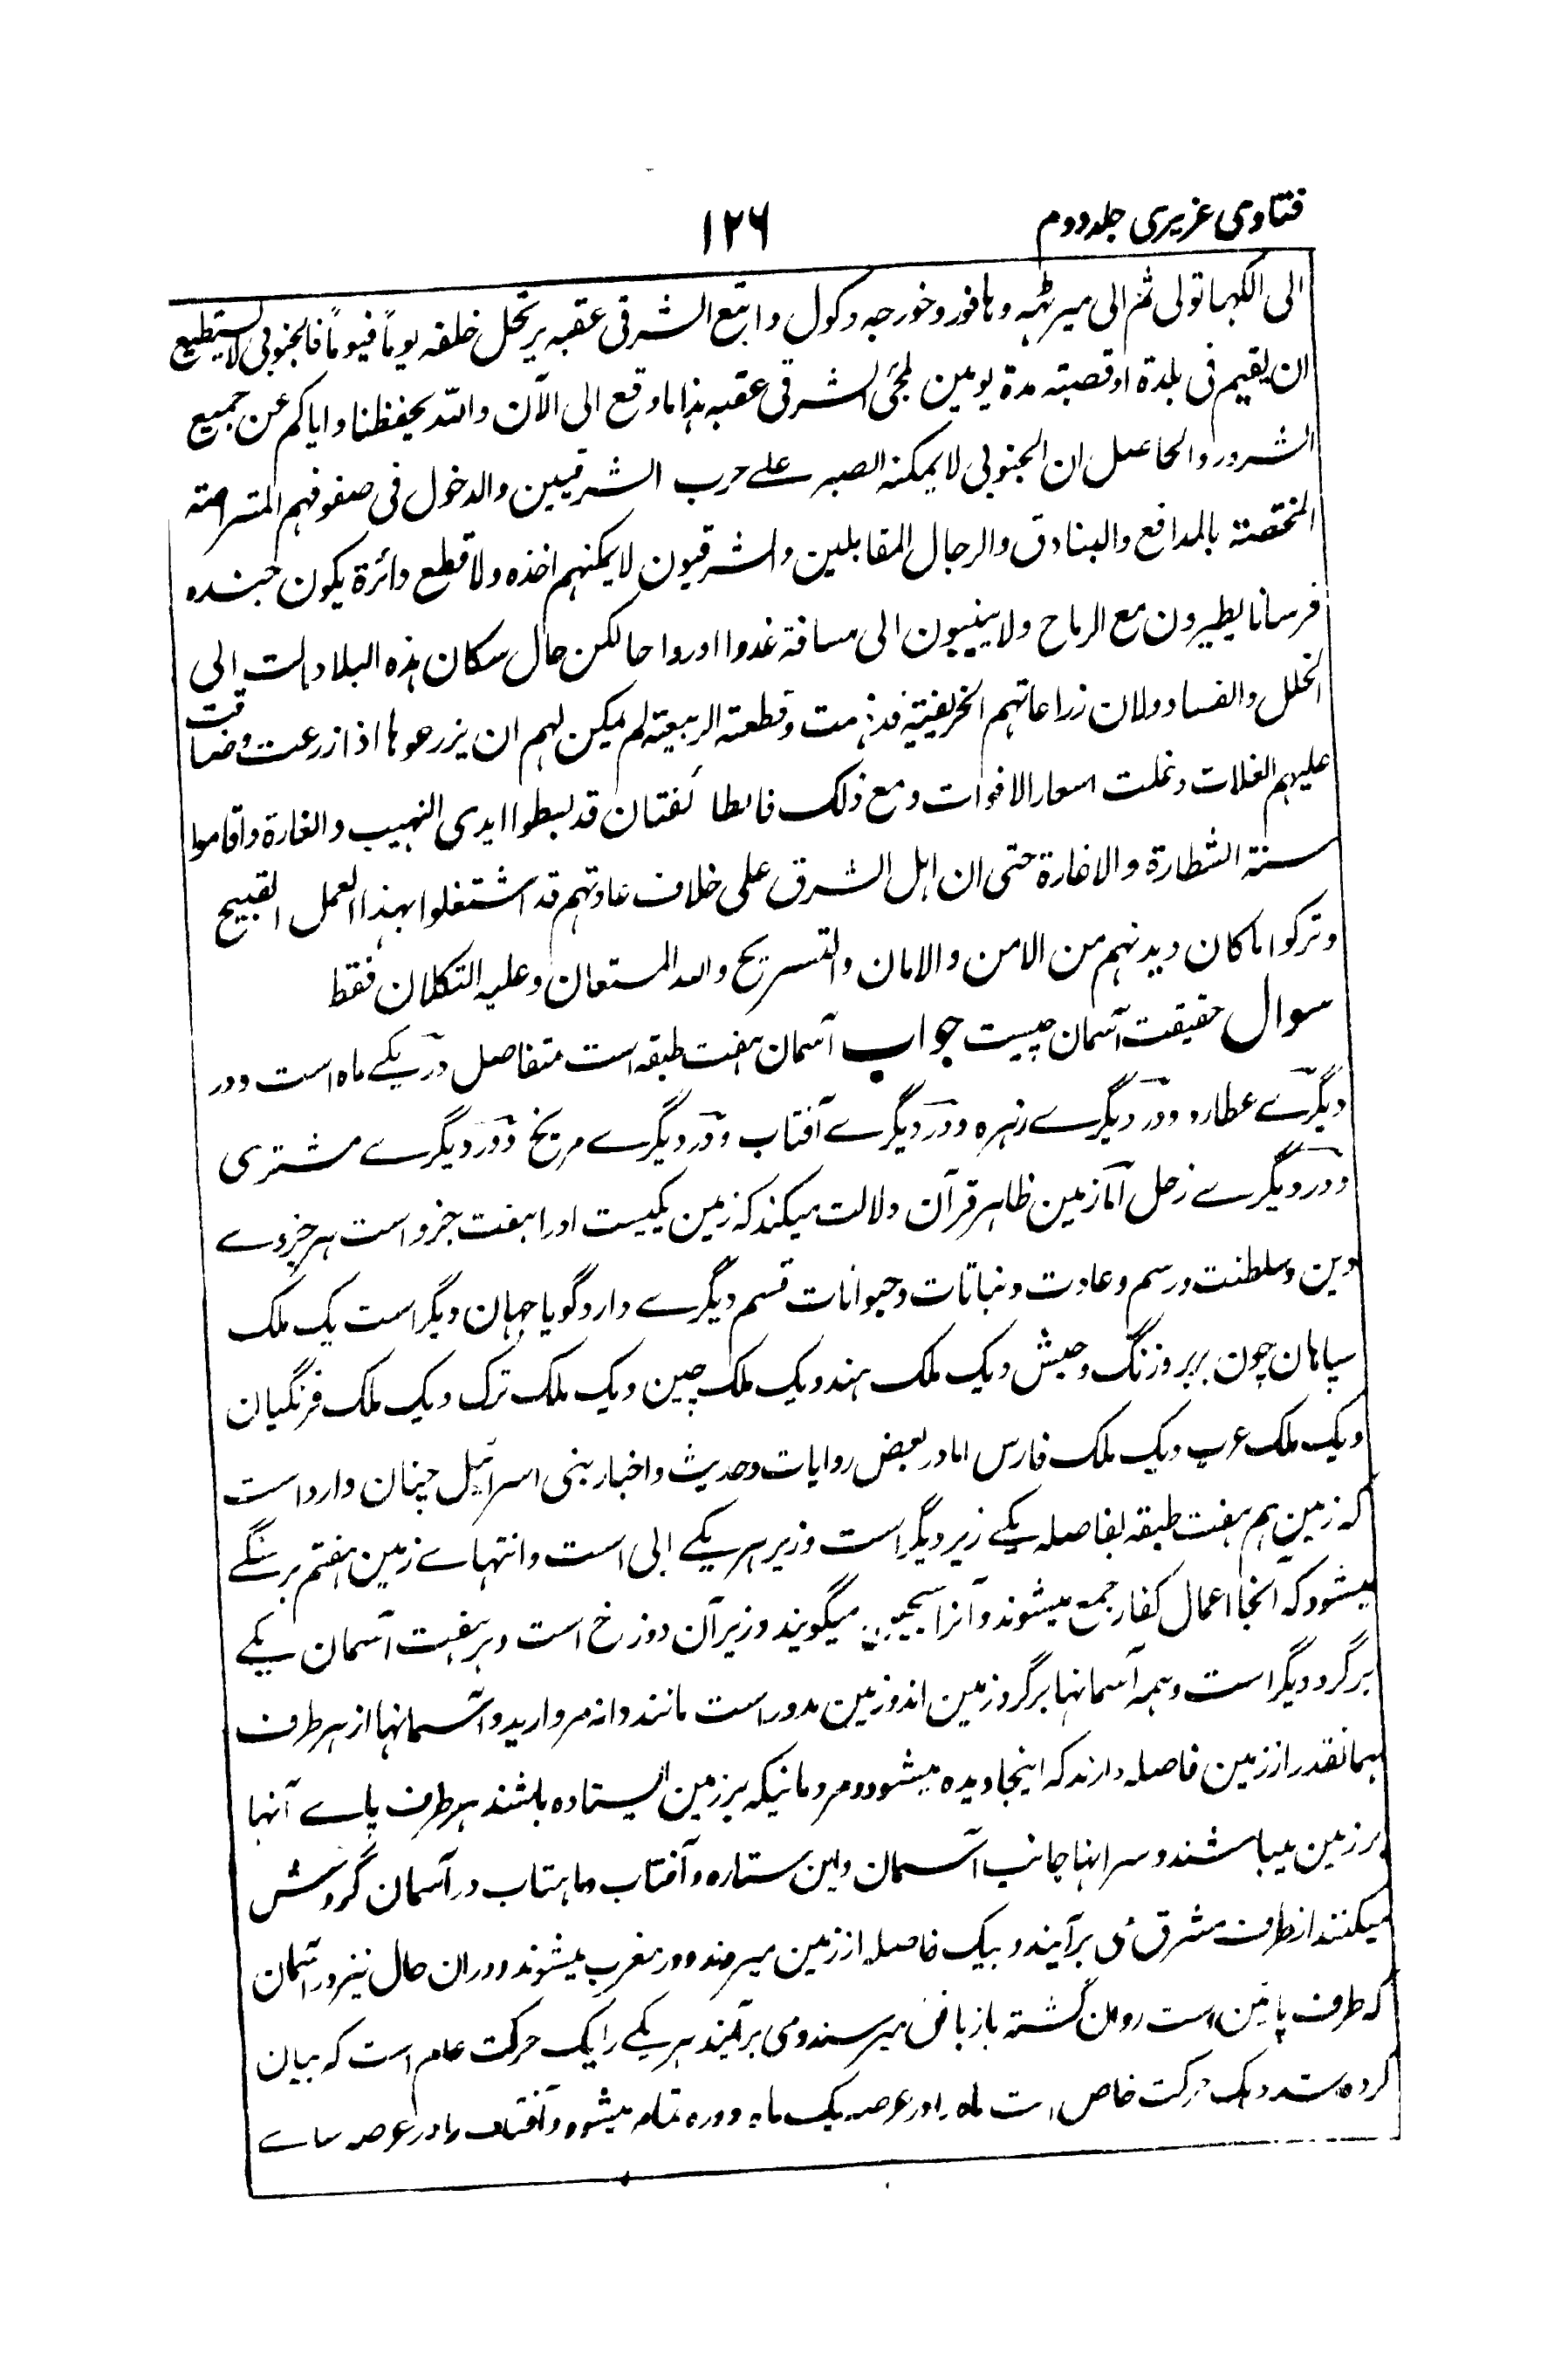 فتاوی عزیزی جلد دوم
۱۲۶
الی الکہاتولی ثم الی میرٹھہ وہافور وخورجہ وکول واتبع الشرقی عقبہ یرتحل خلفہ یوماً فیوماً فالجنوبی لا یستطیع
ان یقیم فی بلدۃ او قصبتہ مدۃ یومین لمجئی الشرقی عقبہ ہذا ما وقع الی الآن واللہ یحفظنا وایاکم عن جمیع
الشرور والحاصل ان الجنوبی لا یمکنہ الصبر علے حرب الشرقیین والدخول فی صفوفہم المتراصتہ
المختصتہ بالمدافع والبنادق والرجال المقابلین والشرقیون لا یمکنہم اخذہ ولا قطع دائرۃ یکون جندہ
فرسانا یطیرون مع الریاح ولا یبیتون الی مسافۃ غدوا اورواحا لکن حال سکان ہذہ البلاد آلت الی
الخلل والفساد ولان زراعاتہم الخریفیتہ قد ذہبت وقطعتہ الربیعتہ لم یکن لہم ان یزرعوہا اذا زرعت وضاقت
علیہم الغلات وغلت اسعار الاقوات ومع ذلک فالطائفتان قد بسطوا ایدی النہیب والغارۃ واقاموا
سنتہ الشطارۃ والاغارۃ حتی ان اہل الشرق علی خلاف عادتہم قد اشتغلوا بہذا العمل القبیح
وترکوا ما کان دیدنہم من الامن والامان والتسریح واللہ المستعان وعلیہ التکلان فقط
سوال حقیقت آسمان چیست جواب آسمان ہفت طبقہ است متفاصل در یکے ماہ است ودر
دیگرے عطارد ودر دیگرے زہرہ ودر دیگرے آفتاب ودر دیگرے مریخ ودر دیگرے مشتری
ودر دیگرے زحل اما زمین ظاہر قرآن دلالت میکند کہ زمین یکیست اورا ہفت جزو است ہر جزوے
دین وسلطنت ورسم وعادت ونباتات وحیوانات قسم دیگرے دارد گویا جہان دیگر است یک ملک
سیاہان چون بربر وزنگ وحبش ویک ملک ہند ویک ملک چین ویک ملک ترک ویک ملک فرنگیان
ویک ملک عرب ویک ملک فارس اما در بعض روایات وحدیث واخبار بنی اسرائیل چنان وارد است
کہ زمین ہم ہفت طبقہ بفاصلہ یکے زیر دیگر است وزیر ہر یکے ابی است وانتہاے زمین ہفتم بر سنگے
میشود کہ آنجا اعمال کفار جمع میشوند وآنرا سجین میگویند وزیر آن دوزخ است وہر ہفت آسمان یکے
بر گرد دیگر است وہمہ آسمانہا بر گرد زمین اند وزمین مدور است مانند دانہ مروارید وآسمانہا از ہر طرف
ہمانقدر از زمین فاصلہ دارند کہ اینجا دیدہ میشود ومردمانیکہ بر زمین ایستادہ باشند ہر طرف پاے آنہا
بر زمین میباشند وسر اینہا جانب آسمان واین ستارہ وآفتاب وماہتاب در آسمان گردش
میکنند از طرف مشرق می برآیند وبیک فاصلہ از زمین میروند ودر مغرب میشوند ودران حال نیز در آسمان
کہ طرف پائین است روان گشتہ باز بافق میرسند ومی برآیند ہر یکے را یک حرکت عام است کہ بیان
کردہ شد ویک حرکت خاص است ماہ را در عرصہ یک ماہ دورہ تمام میشود وآفتاب را در عرصہ سالے